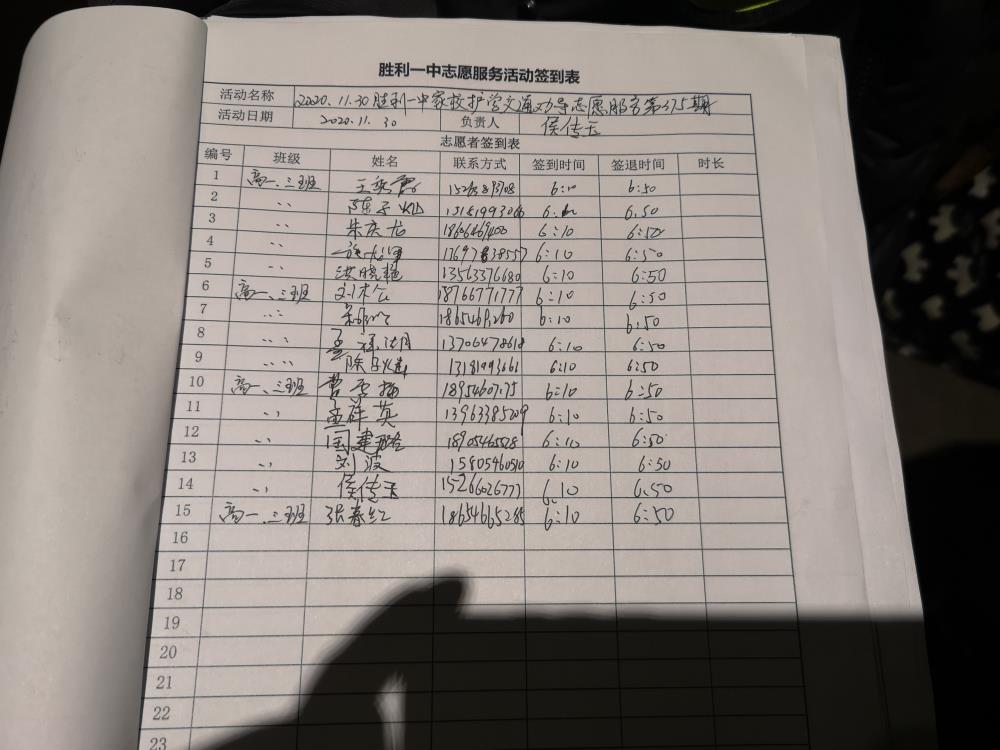 胜利一中志愿服务活动签到表
活动名称 2020.11.30胜利一中家校护学交通劝导志愿服务第375期
活动日期 2020.11.30 负责人 侯传玉
志愿者签到表
编号 班级 姓名 联系方式 签到时间 签退时间 时长
1 高一.三班 6:10 6:50
2 〃 陈子 6:50
3 〃 朱庆龙 6:10
4 〃 6:10 6:50
5 〃 洪晓艳 13563376680 6:10 6:50
6 高一.三班 18766771777 6:10 6:50
7 〃 6:10 6:50
8 〃 13706478618 6:10 6:50
9 〃 陈子 13181993661 6:10 6:50
10 高一.三班 6:10 6:50
11 〃 孟祥英 13963385209 6:10 6:50
12 〃 国建 18905465528 6:10 6:50
13 〃 刘波 15805460510 6:10 6:50
14 〃 侯传玉 15266026777 6.10 6.50
15 高一.三班 张春红 18654665285 6:10 6:50
16
17
18
19
20
21
22
23